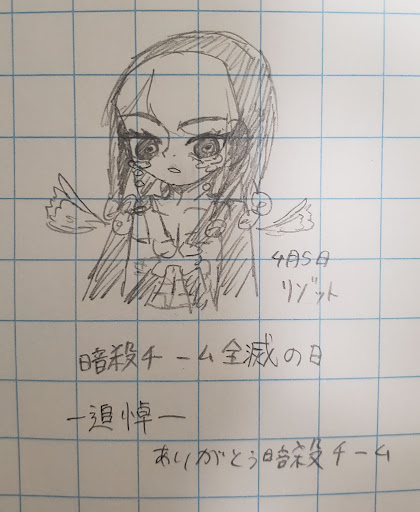 4月5日
リゾット
暗殺チーム全滅の日
ー追悼ー
ありがとう暗殺チーム